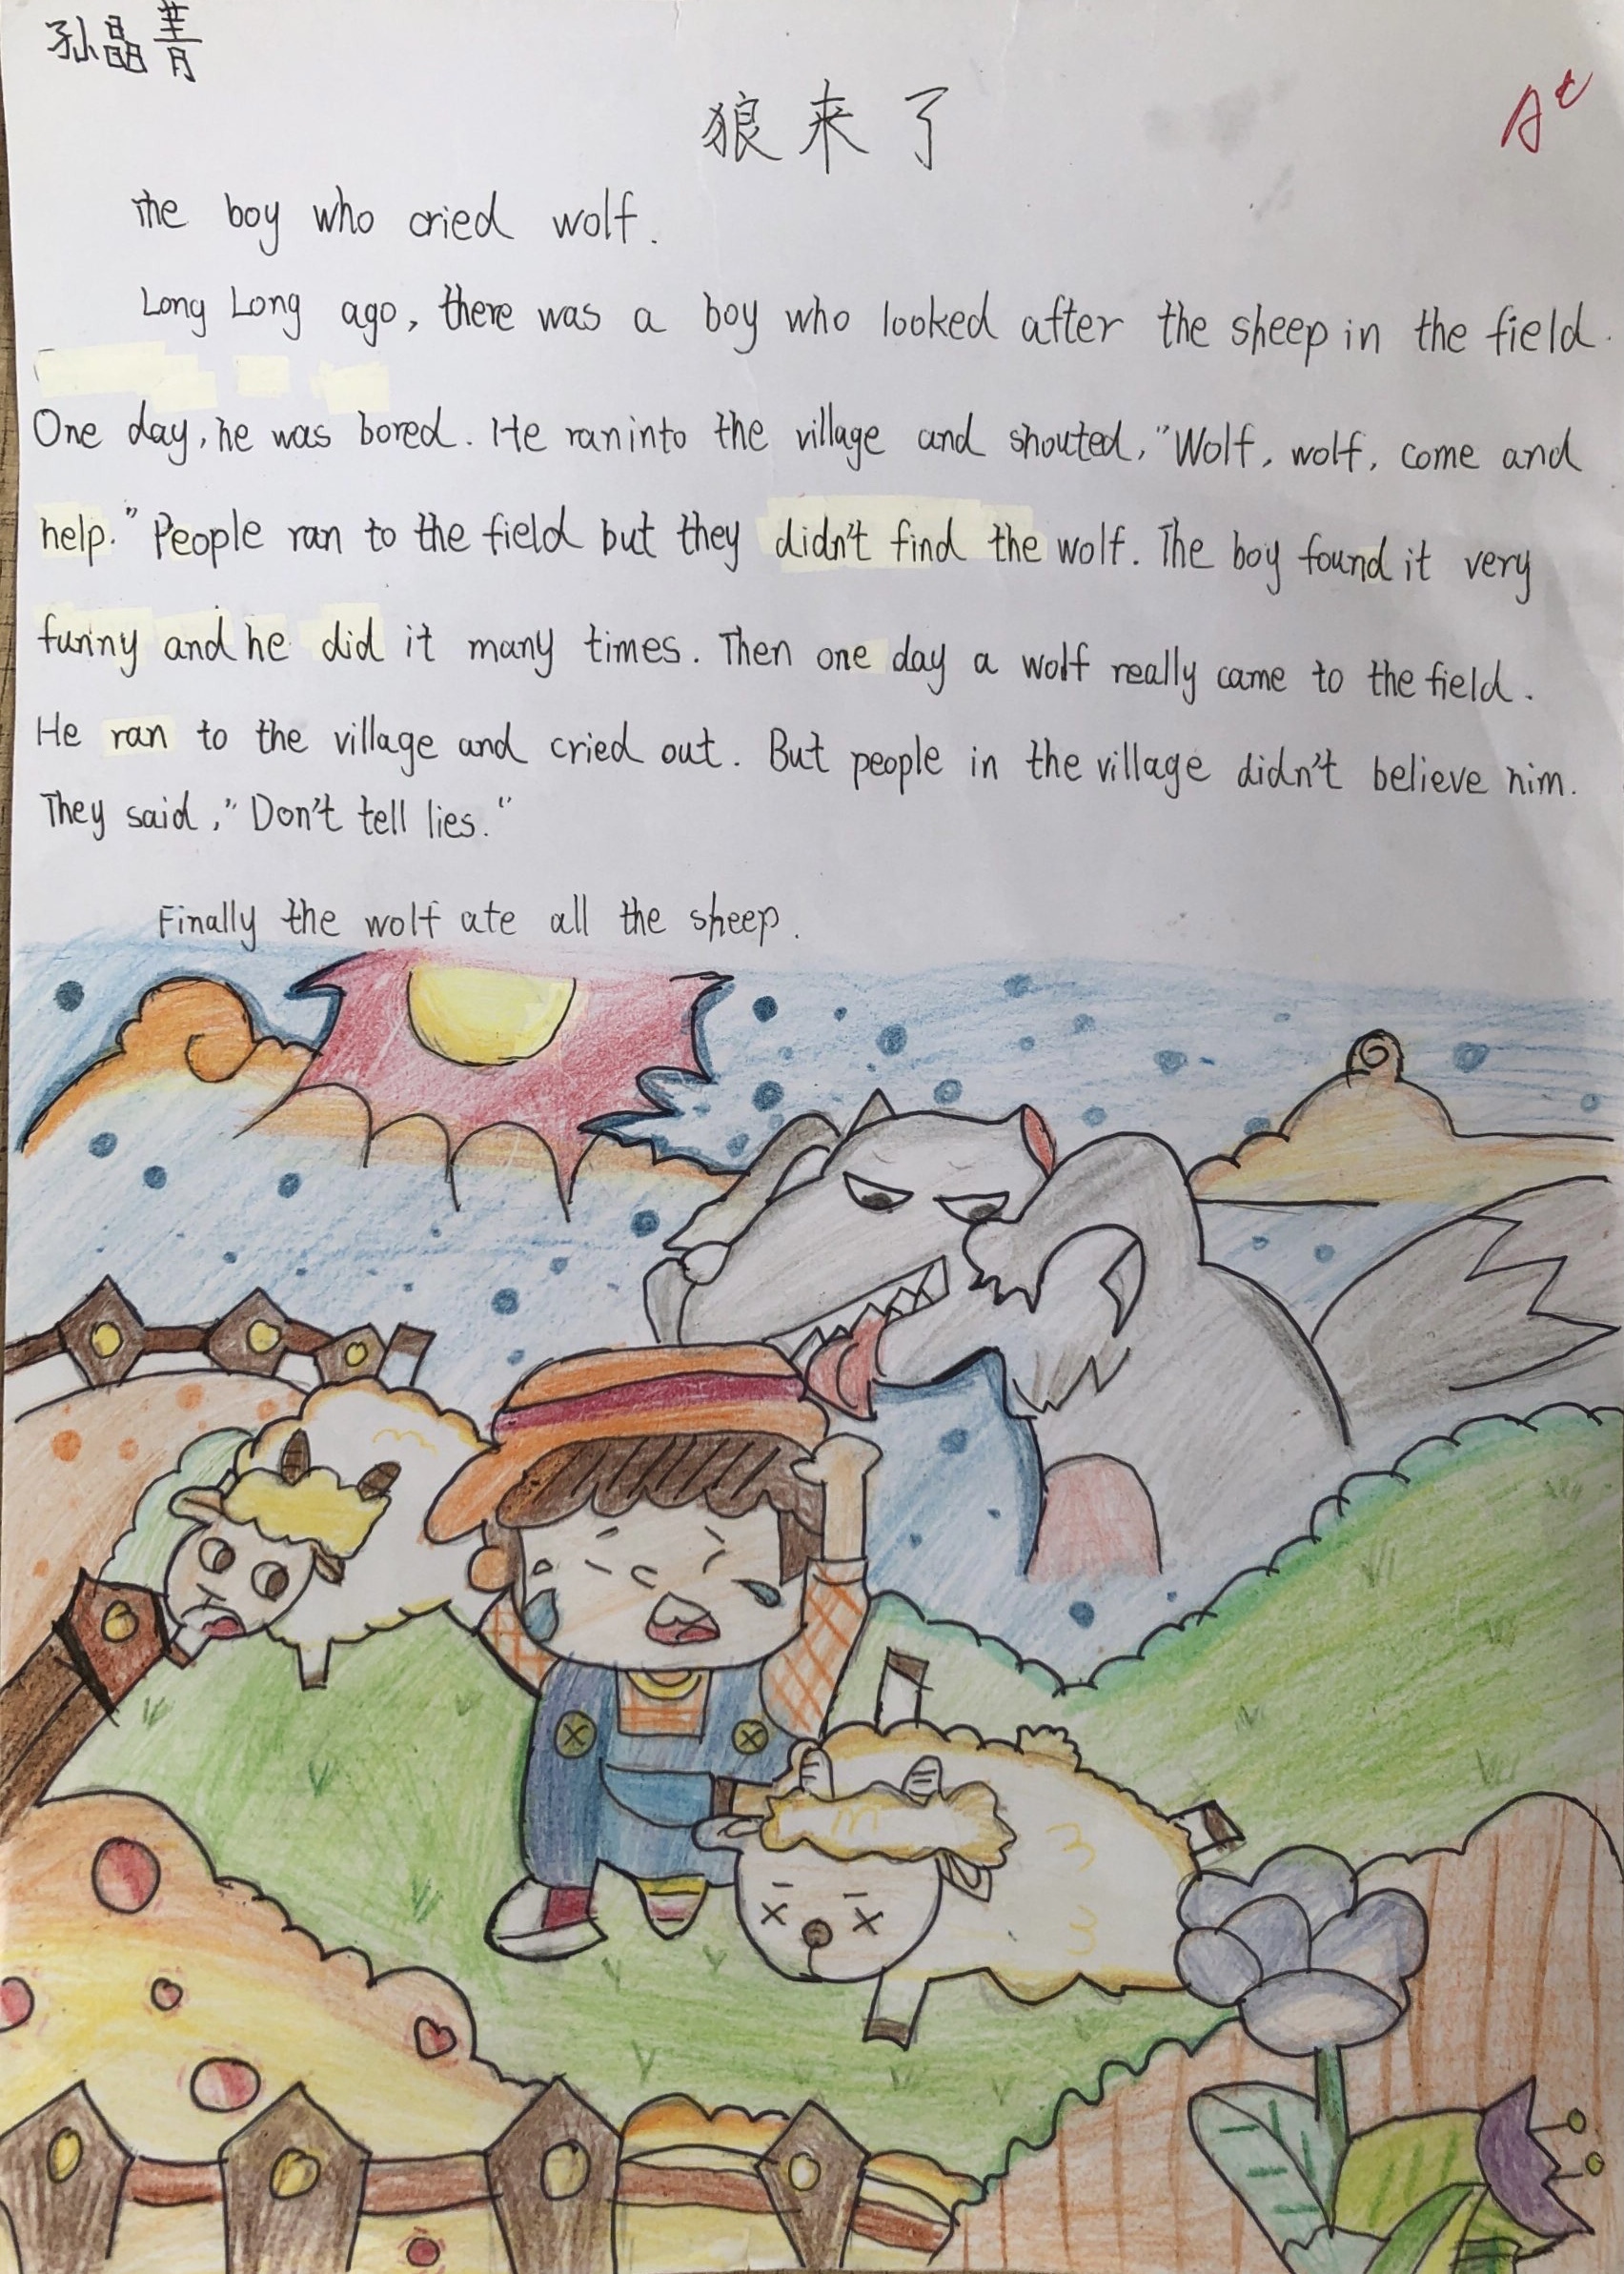 孙晶菁
狼来了
A+
The boy who cried wolf.
Long Long ago, there was a boy who looked after the sheep in the field.
One day, he was bored. He ran into the village and shouted, "Wolf, wolf, come and
help." People ran to the field but they didn't find the wolf. The boy found it very
funny and he did it many times. Then one day a wolf really came to the field.
He ran to the village and cried out. But people in the village didn't believe him.
They said, "Don't tell lies."
Finally the wolf ate all the sheep.